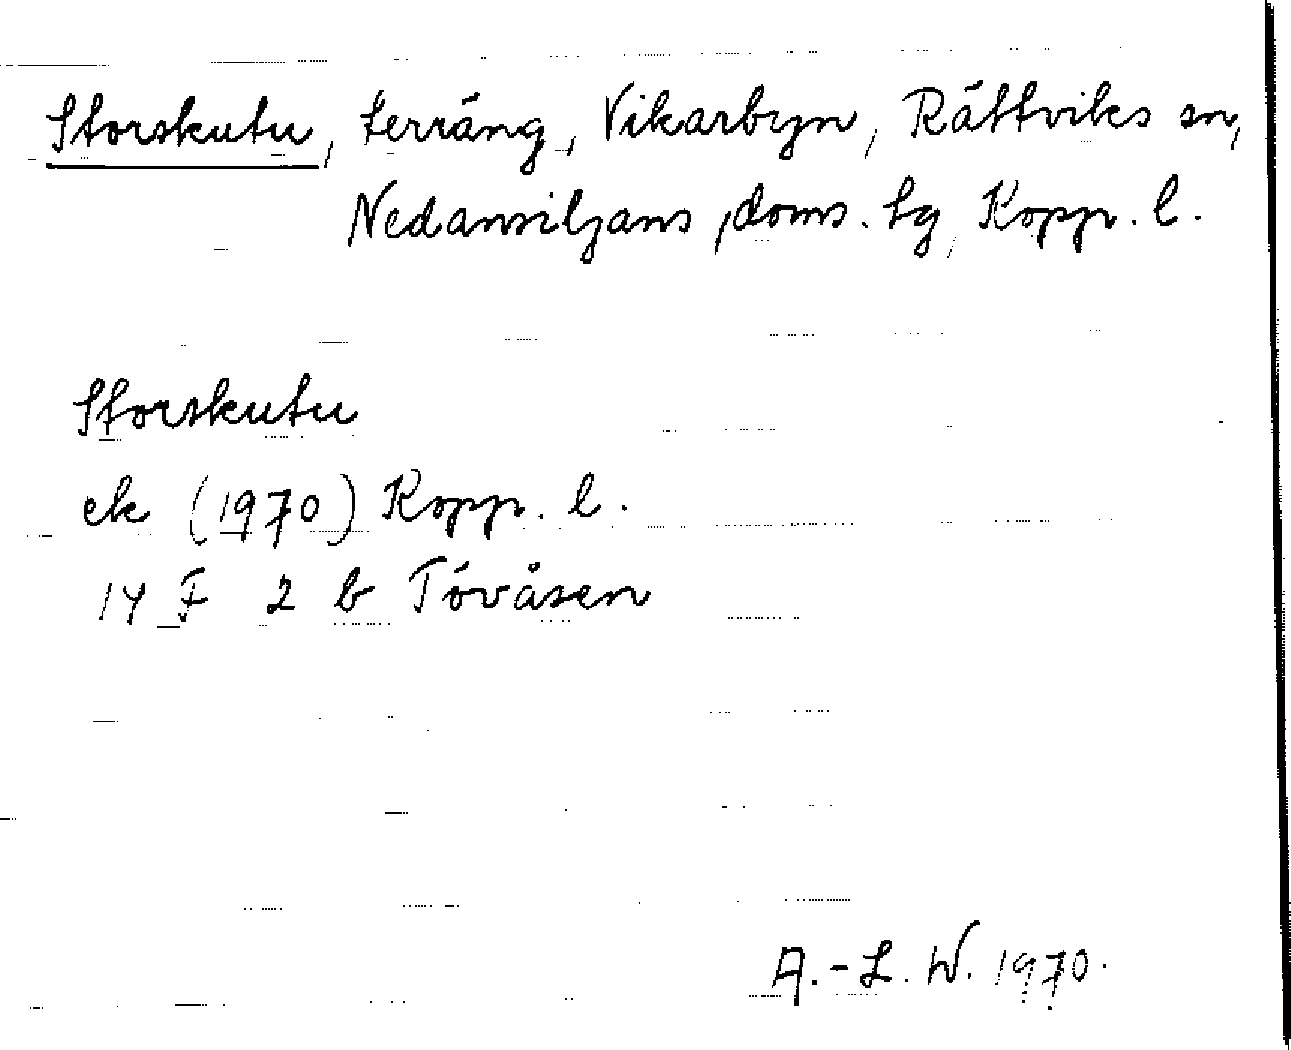 Storskutu, terräng, Vikarbyn, Rättviks sn,
Nedansiljans doms. tg, Kopp. l.
Storskutu
ek (1970) Kopp. l.
14 F 2 b Tövåsen
A.-L. W. 1970.